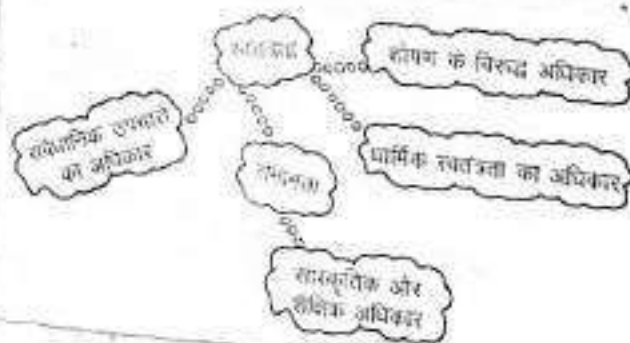 शोषण के विरुद्ध अधिकार
संवैधानिक उपचारों
का अधिकार
धार्मिक स्वतंत्रता का अधिकार
सांस्कृतिक और
शैक्षिक अधिकार